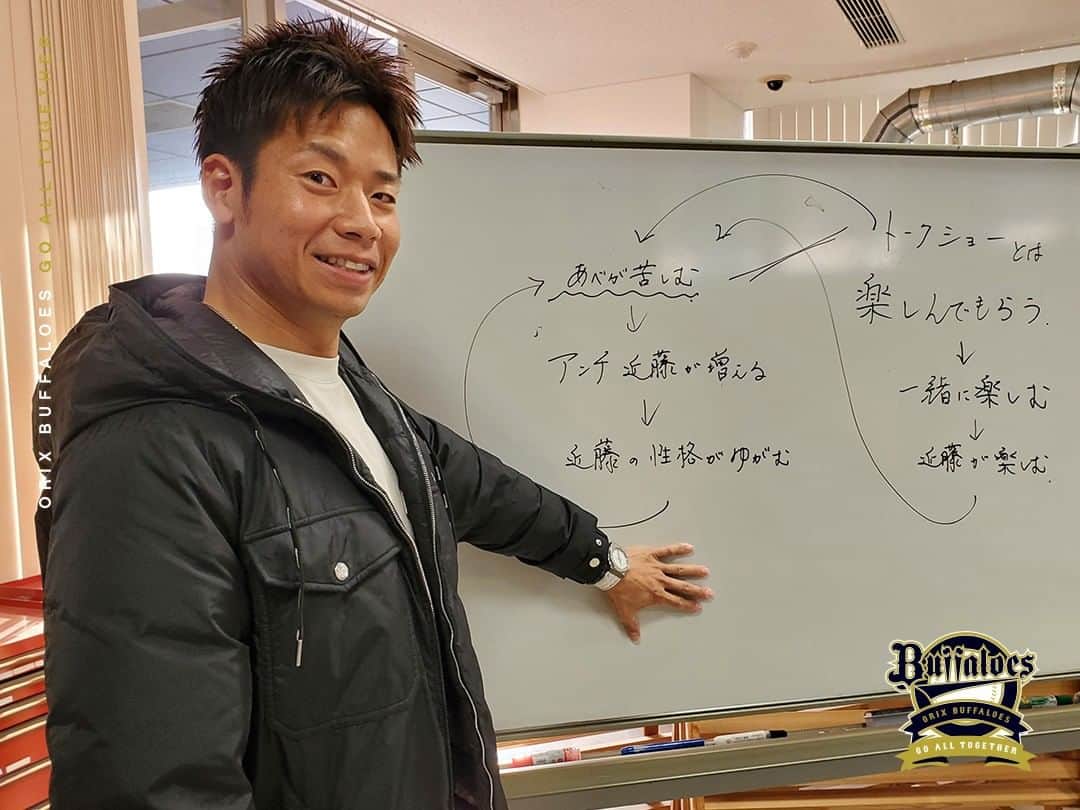 ORIX BUFFALOES GO ALL TOGETHER
トークショーとは
楽しんでもらう.
一緒に楽しむ
近藤が楽しむ.
あべが苦しむ
アンチ近藤が増える
近藤の性格がゆがむ
Buffaloes
ORIX BUFFALOES
GO ALL TOGETHER